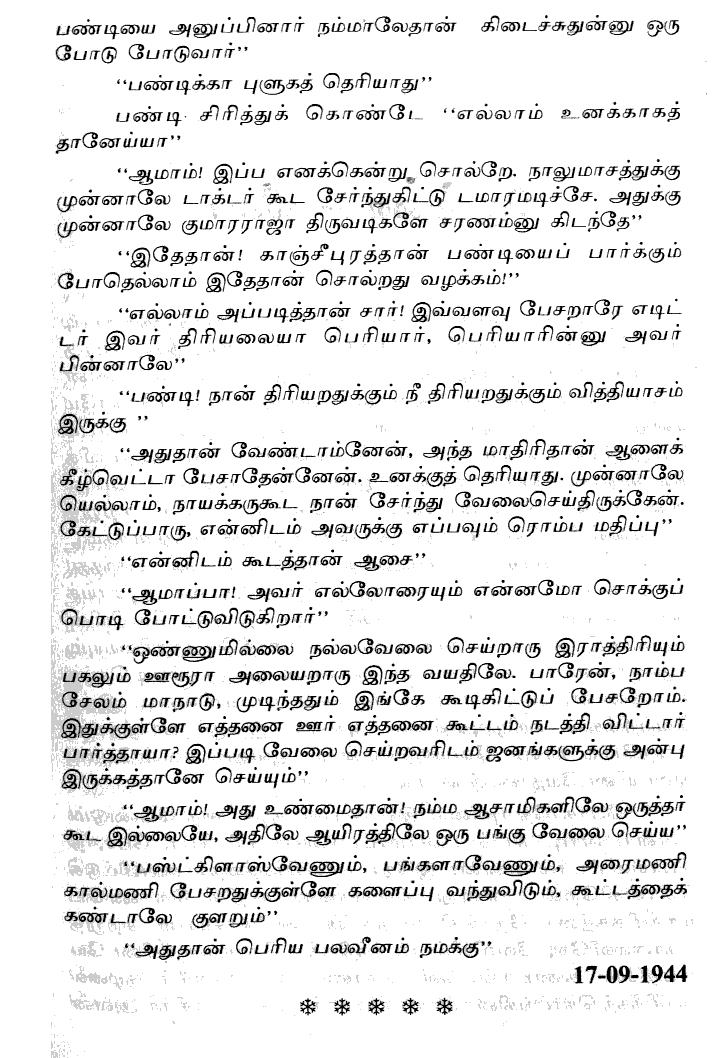 பண்டியை அனுப்பினார் நம்மாலேதான் கிடைச்சுதுன்னு ஒரு
போடு போடுவார்’’
‘‘பண்டிக்கா புளுகத் தெரியாது’’
பண்டி சிரித்துக் கொண்டே ‘‘எல்லாம் உனக்காகத்
தானேய்யா’’
‘‘ஆமாம்! இப்ப எனக்கென்று சொல்றே. நாலுமாசத்துக்கு
முன்னாலே டாக்டர் கூட சேர்ந்துகிட்டு டமாரமடிச்சே. அதுக்கு
முன்னாலே குமாரராஜா திருவடிகளே சரணம்னு கிடந்தே’’
‘‘இதேதான்! காஞ்சீபுரத்தான் பண்டியைப் பார்க்கும்
போதெல்லாம் இதேதான் சொல்றது வழக்கம்!’’
‘‘எல்லாம் அப்படித்தான் சார்! இவ்வளவு பேசறாரே எடிட்
டர் இவர் திரியலையா பெரியார், பெரியாரின்னு அவர்
பின்னாலே’’
‘‘பண்டி! நான் திரியறதுக்கும் நீ திரியறதுக்கும் வித்தியாசம்
இருக்கு ’’
‘‘அதுதான் வேண்டாம்னேன், அந்த மாதிரிதான் ஆளைக்
கீழ்வெட்டா பேசாதேன்னேன். உனக்குத் தெரியாது. முன்னாலே
யெல்லாம், நாயக்கருகூட நான் சேர்ந்து வேலைசெய்திருக்கேன்.
கேட்டுப்பாரு, என்னிடம் அவருக்கு எப்பவும் ரொம்ப மதிப்பு’’
‘‘என்னிடம் கூடத்தான் ஆசை’’
‘‘ஆமாப்பா! அவர் எல்லோரையும் என்னமோ சொக்குப்
பொடி போட்டுவிடுகிறார்’’
‘‘ஒண்ணுமில்லை நல்லவேலை செய்றாரு இராத்திரியும்
பகலும் ஊரூரா அலையறாரு இந்த வயதிலே. பாரேன், நாம்ப
சேலம் மாநாடு, முடிந்ததும் இங்கே கூடிகிட்டுப் பேசறோம்.
இதுக்குள்ளே எத்தனை ஊர் எத்தனை கூட்டம் நடத்தி விட்டார்
பார்த்தாயா? இப்படி வேலை செய்றவரிடம் ஜனங்களுக்கு அன்பு
இருக்கத்தானே செய்யும்’’
‘‘ஆமாம்! அது உண்மைதான்! நம்ம ஆசாமிகளிலே ஒருத்தர்
கூட இல்லையே, அதிலே ஆயிரத்திலே ஒரு பங்கு வேலை செய்ய’’
‘‘பஸ்ட்கிளாஸ்வேணும், பங்களாவேணும், அரைமணி
கால்மணி பேசறதுக்குள்ளே களைப்பு வந்துவிடும், கூட்டத்தைக்
கண்டாலே குளறும்’’
‘‘அதுதான் பெரிய பலவீனம் நமக்கு’’
17-09-1944